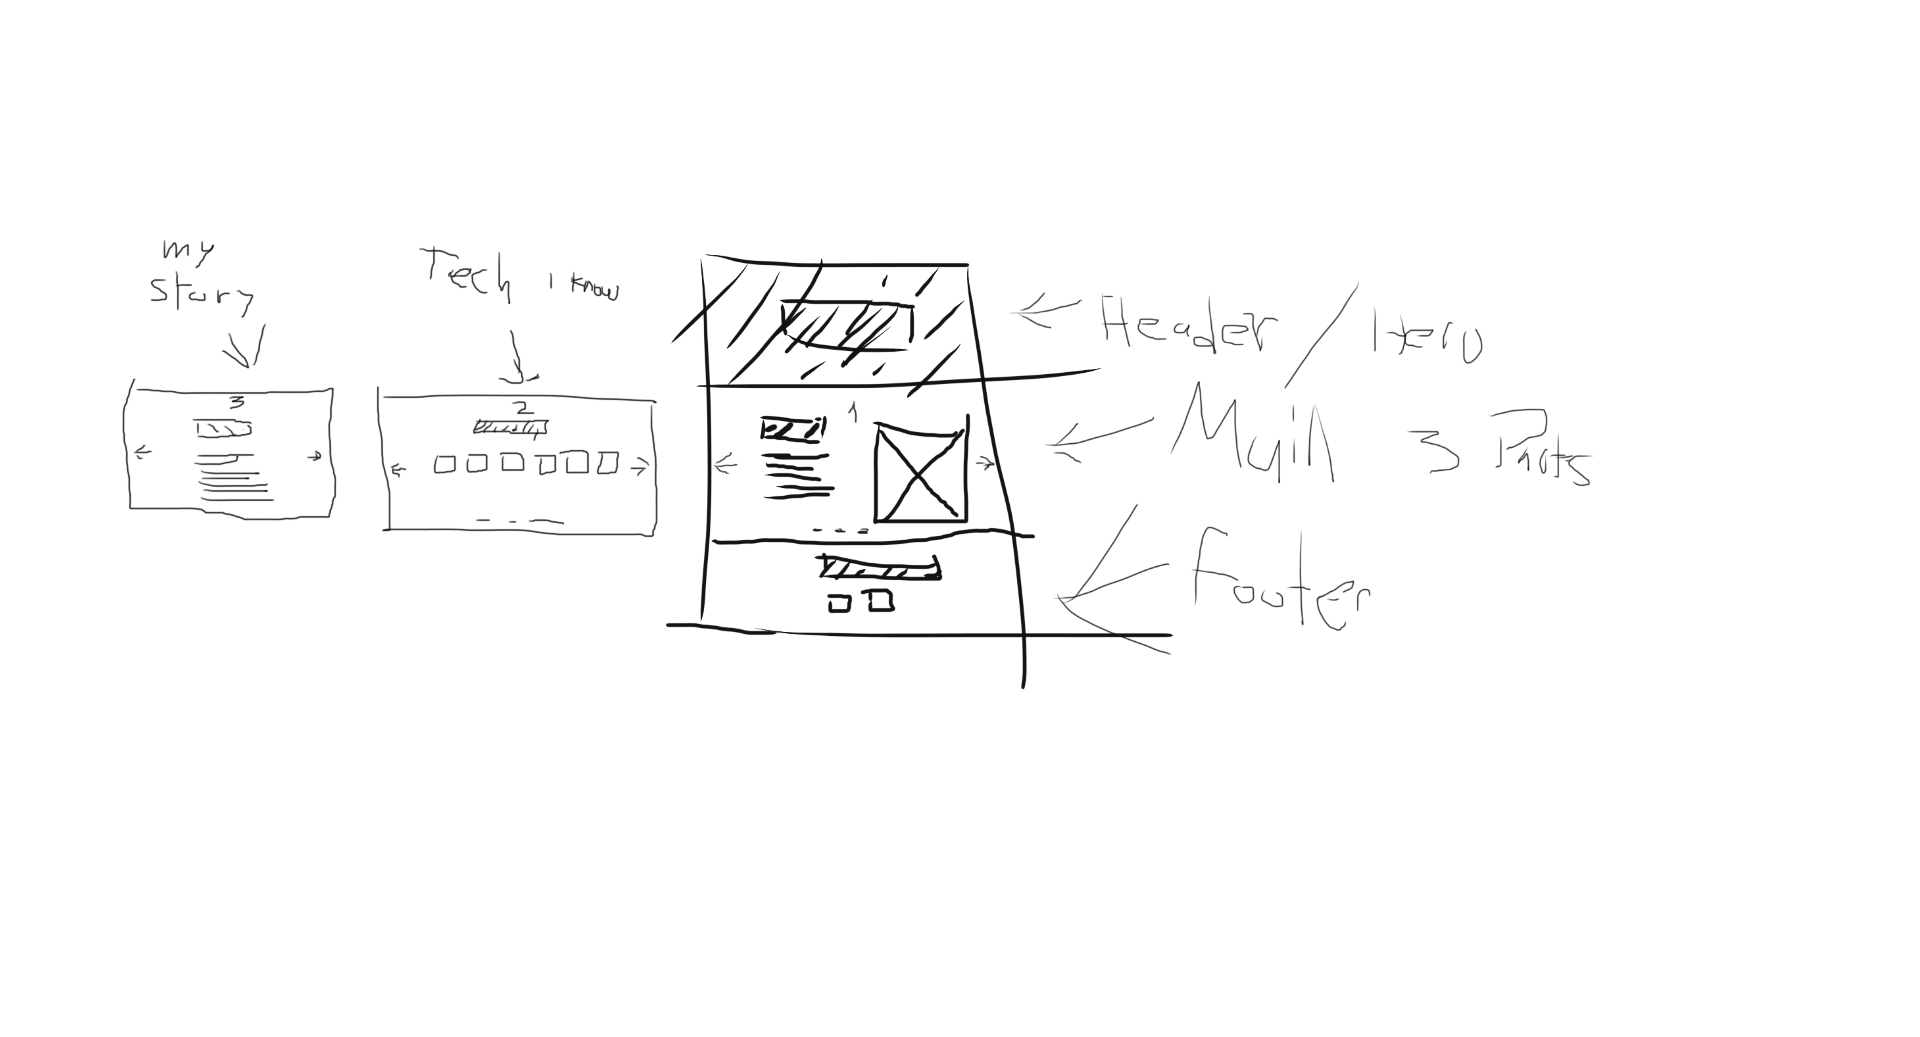 my
story
Tech I know
3
2
1
Header / Hero
Main 3 Parts
Footer